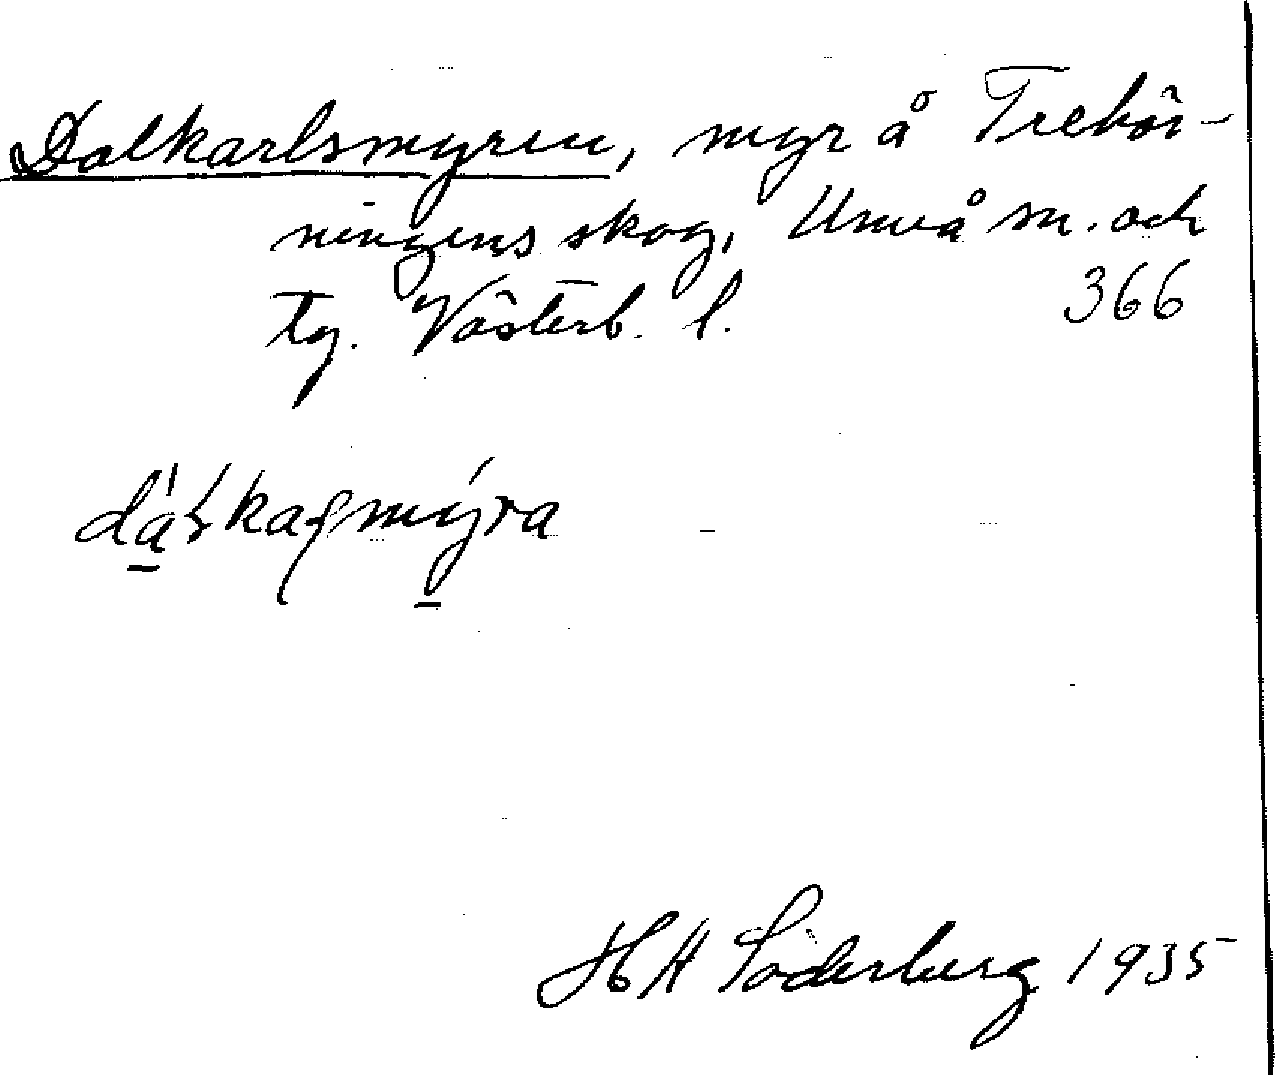 Dalkarlsmyren, myr å Trehör-
ningens skog, Umeå sn. och
tg. Västerb. l. 366
HA Söderberg 1935